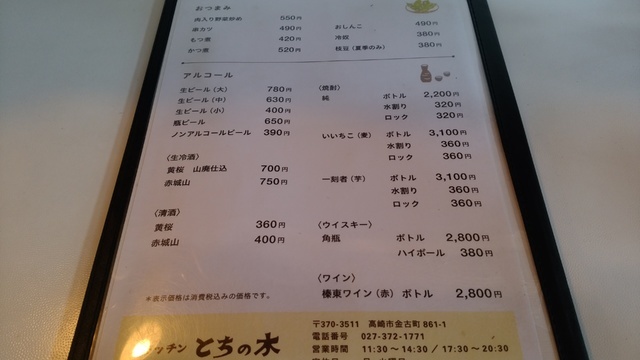 おつまみ
肉入り野菜炒め 550円
串カツ 490円
もつ煮 420円
かつ煮 520円
おしんこ 490円
冷奴 380円
枝豆(夏季のみ) 380円
アルコール
生ビール(大) 780円
生ビール(中) 630円
生ビール(小) 400円
瓶ビール 650円
ノンアルコールビール 390円
〈生冷酒〉
黄桜 山廃仕込 700円
赤城山 750円
〈清酒〉
黄桜 360円
赤城山 400円
*表示価格は消費税込みの価格です。
〈焼酎〉
純 ボトル 2,200円
水割り 320円
ロック 320円
いいちこ(麦) ボトル 3,100円
水割り 360円
ロック 360円
一刻者(芋) ボトル 3,100円
水割り 360円
ロック 360円
〈ウイスキー〉
角瓶 ボトル 2,800円
ハイボール 380円
〈ワイン〉
榛東ワイン(赤) ボトル 2,800円
キッチン とちの木
〒370-3511 高崎市金古町861-1
電話番号 027-372-1771
営業時間 11:30~14:30 / 17:30~20:30